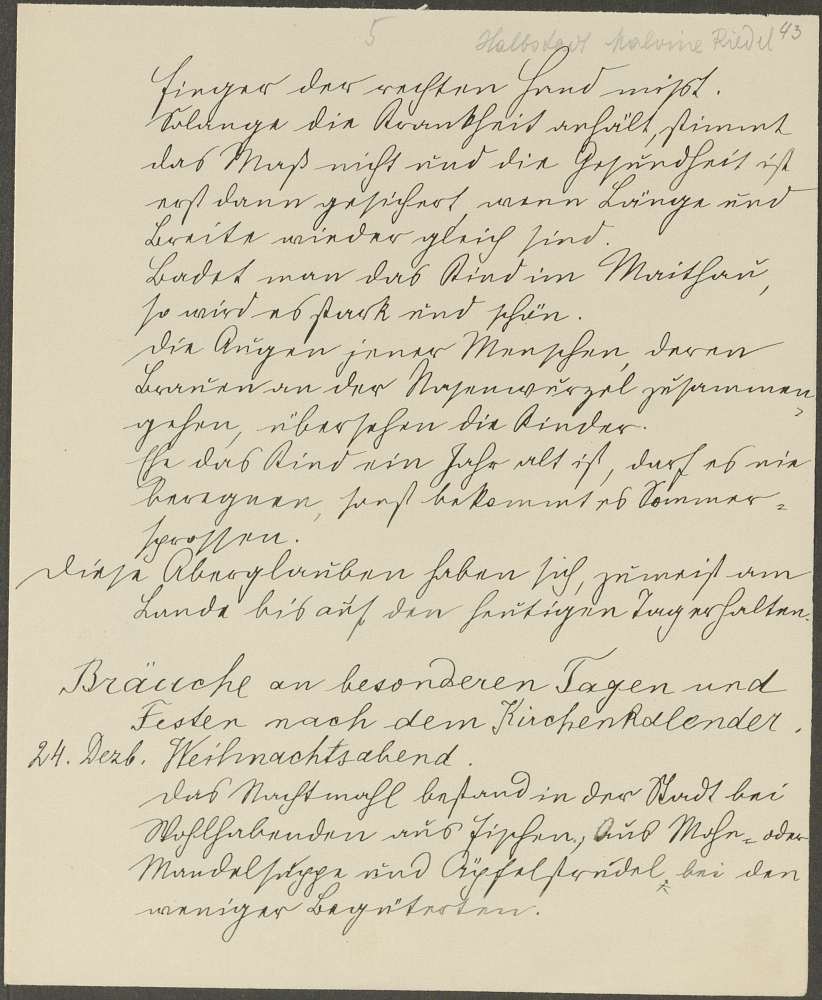 5 Halbstadt Malvine Riedel 43
Finger der rechten Hand mißt.
Solange die Krankheit anhält, stimmt
das Maß nicht und die Gesundheit ist
erst dann gesichert, wenn Länge und
Breite wieder gleich sind.
Badet man das Kind im Maithau,
so wird es stark und schön.
Die Augen jener Menschen, deren
Brauen an der Nasenwurzel zusammen
gehen, übersehen die Kinder.
Ehe das Kind ein Jahr alt ist, darf es nie
beregnen, sonst bekommt es Sommer=
sprossen.
Diese Aberglauben haben sich, zumeist am
Lande bis auf den heutigen Tag erhalten.
Bräuche an besonderen Tagen und
Festen nach dem Kirchenkalender.
24. Dezb. Weihnachtsabend.
Das Nachtmahl bestand in der Stadt bei
Wohlhabenden aus Fischen, aus Mohn= oder
Mandelsuppe und Äpfelstrudel, bei den
weniger Begüterten.